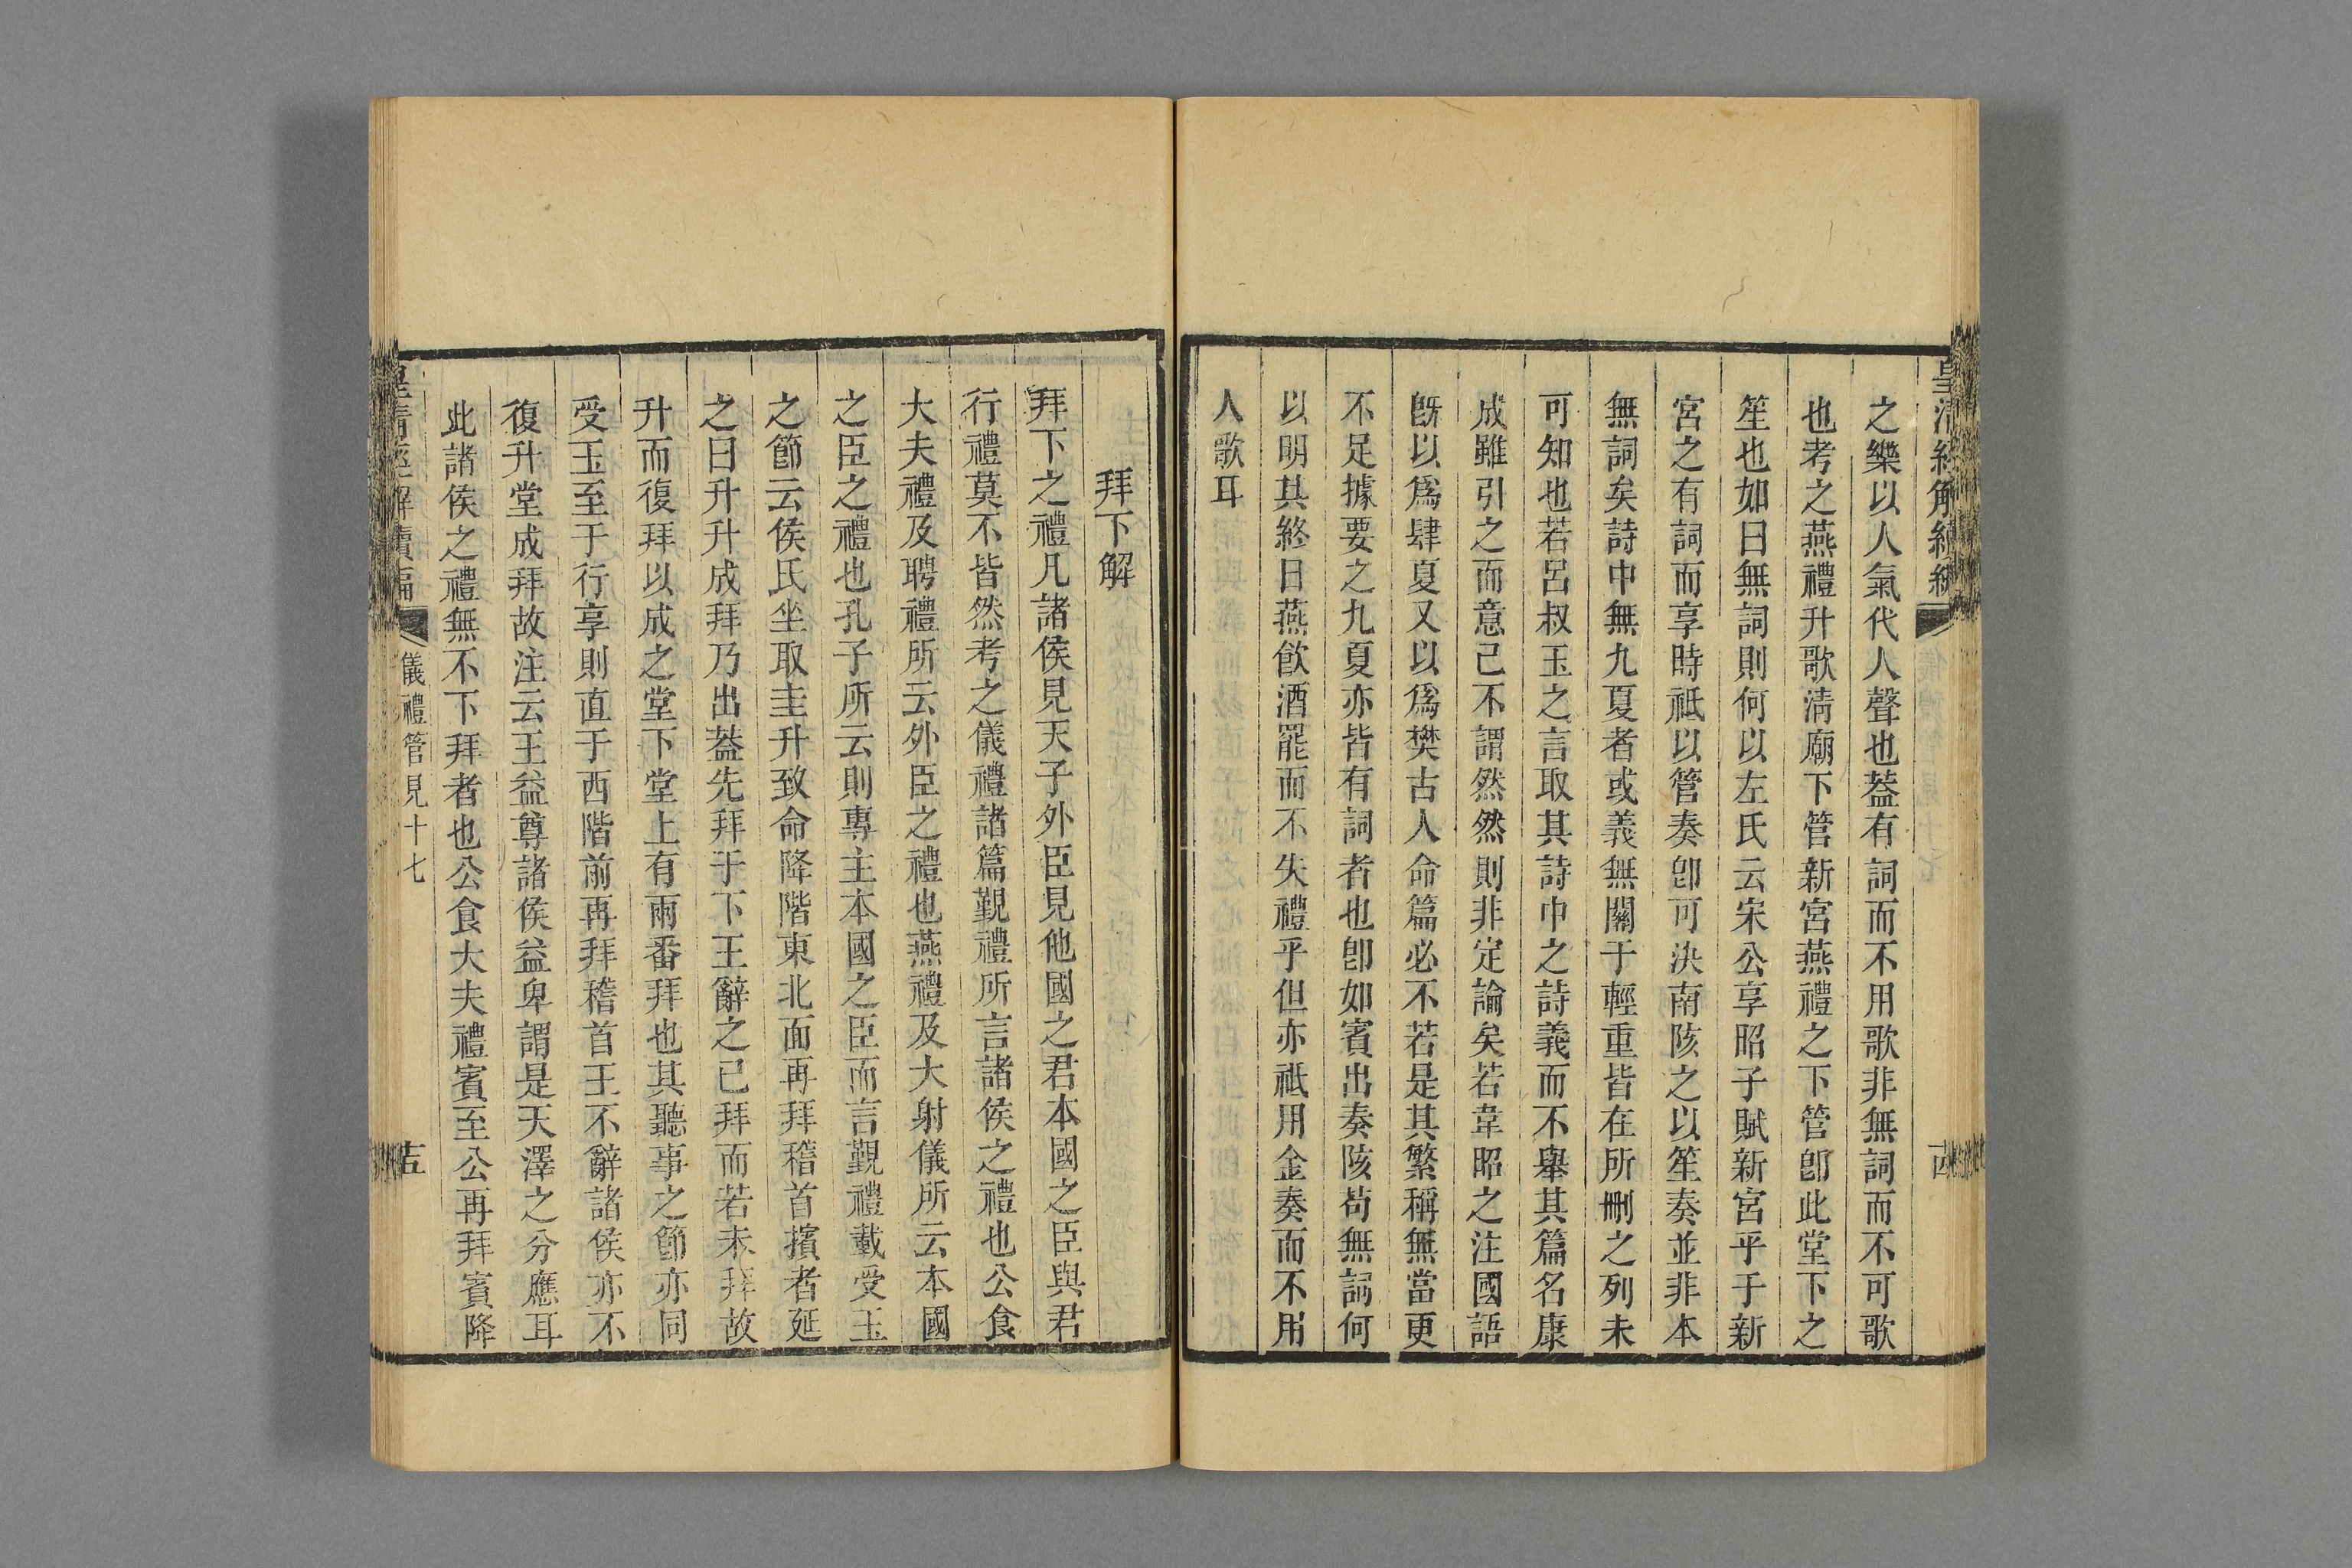 皇清經解續編
之樂以人氣代人聲也葢有詞而不用歌非無詞而不可歌
也考之燕禮升歌淸廟下管新宮燕禮之下管卽此堂下之
笙也如曰無詞則何以左氏云宋公享昭子賦新宮乎于新
宮之有詞而享時祗以管奏卽可決南陔之以笙奏並非本
無詞矣詩中無九夏者或義無關于輕重皆在所刪之列未
可知也若呂叔玉之言取其詩中之詩義而不舉其篇名康
成雖引之而意己不謂然然則非定論矣若韋昭之注國語
旣以爲肆夏又以爲樊古人命篇必不若是其繁稱無當更
不足據要之九夏亦皆有詞者也卽如賓出奏陔苟無詞何
以明其終日燕飮酒罷而不失禮乎但亦祗用金奏而不用
人歌耳
拜下解
拜下之禮凡諸侯見天子外臣見他國之君本國之臣與君
行禮莫不皆然考之儀禮諸篇覲禮所言諸侯之禮也公食
大夫禮及聘禮所云外臣之禮也燕禮及大射儀所云本國
之臣之禮也孔子所云則專主本國之臣而言覲禮載受玉
之節云侯氏坐取圭升致命降階東北面再拜稽首擯者延
之曰升升成拜乃出葢先拜于下王辭之己拜而若未拜故
升而復拜以成之堂下堂上有兩番拜也其聽事之節亦同
受玉至于行享則直于西階前再拜稽首王不辭諸侯亦不
復升堂成拜故注云王益尊諸侯益卑謂是天澤之分應耳
此諸侯之禮無不下拜者也公食大夫禮賓至公再拜賓降
皇清經解續編
儀禮管見十七